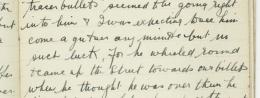 tracer bullets seemed to be going right
into him & I was expecting to see him
come a gutser any minute but no
such luck, for he wheeled round
& came up the strut towards our billets
when he thought he was over them he